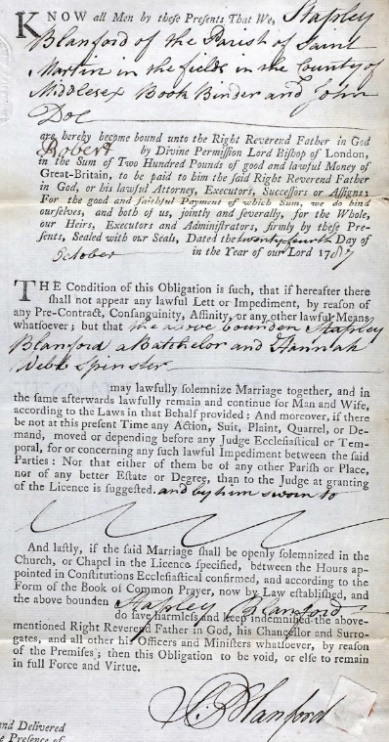 KNOW all Men by these Presents That We, Stapley
Blanford of the Parish of Saint
Martin in the fields in the County of
Middlesex Book Binder and John
Doe
are hereby become bound unto the Right Reverend Father in God
Robert by Divine Permission Lord Bishop of London,
in the Sum of Two Hundred Pounds of good and lawful Money of
Great-Britain, to be paid to him the said Right Reverend Father
in God, or his lawful Attorney, Executors, Successors or Assigns;
For the good and faithful Payment of which Sum, we do bind
ourselves, and both of us, jointly and severally, for the Whole,
our Heirs, Executors and Administrators, firmly by these Pre-
sents, Sealed with our Seals, Dated the twenty fourth Day of
October in the Year of our Lord 17
THE Condition of this Obligation is such, that if hereafter there
shall not appear any lawful Lett or Impediment, by reason of
any Pre-Contract, Consanguinity, Affinity, or any other lawful Means
whatsoever; but that the above bounden Stapley
Blanford a Batchelor and Hannah
Webb Spinster
may lawfully solemnize Marriage together, and in
the same afterwards lawfully remain and continue for Man and Wife,
according to the Laws in that Behalf provided: And moreover, if there
be not at this present Time any Action, Suit, Plaint, Quarrel, or De-
mand, moved or depending before any Judge Ecclesiastical or Tem-
poral, for or concerning any such lawful Impediment between the said
Parties: Nor that either of them be of any other Parish or Place,
nor of any better Estate or Degree, than to the Judge at granting
of the Licence is suggested. and by him sworn to
And lastly, if the said Marriage shall be openly solemnized in the
Church, or Chapel in the Licence specified, between the Hours ap-
pointed in Constitutions Ecclesiastical confirmed, and according to the
Form of the Book of Common Prayer, now by Law established, and
the above bounden Stapley Blanford
do save harmless and keep indemnified the above-
mentioned Right Reverend Father in God, his Chancellor and Surro-
gates, and all other his Officers and Ministers whatsoever, by reason
of the Premises; then this Obligation to be void, or else to remain
in full Force and Virtue.
S Blanford
and Delivered
e Presence of